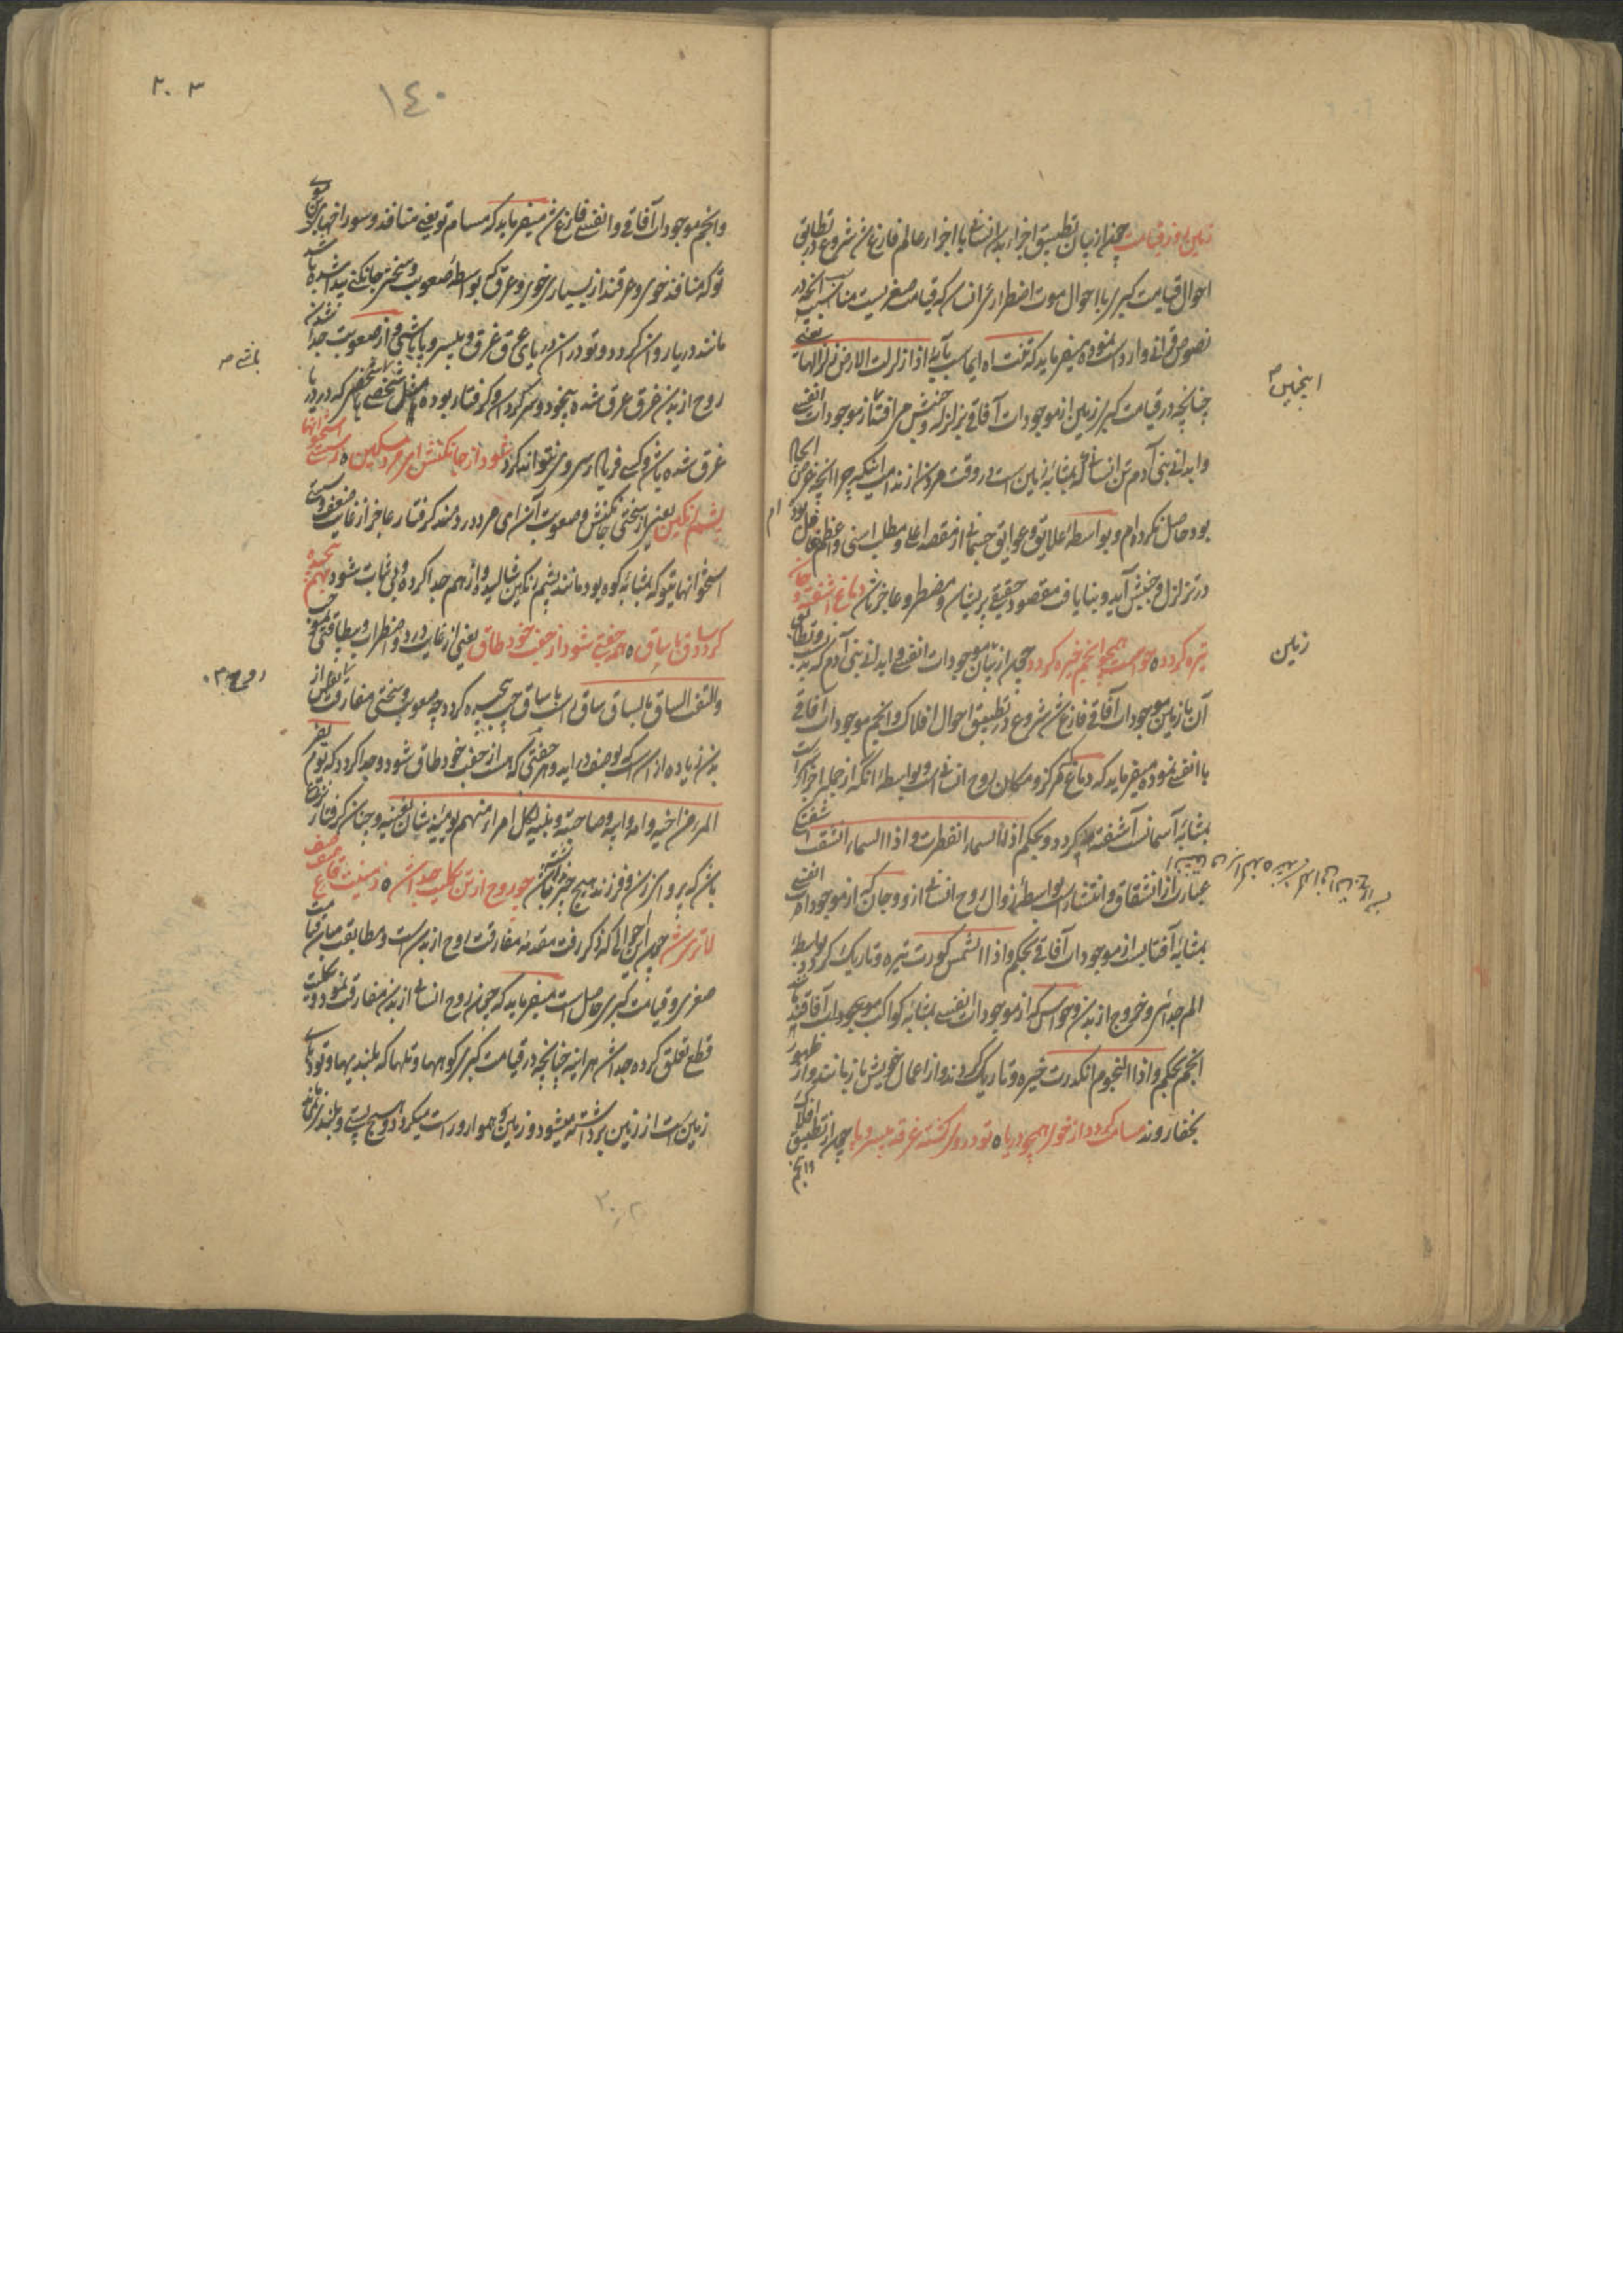 زمین روز قیامت چون از بیان تطبیق اجزاء بدن انسانی با اجزاء عالم فارغ شد شروع در تطابق
احوال قیامت کبری با احوال موت اضطراری انسان که قیامت صغریست مناسب آنچه در
نصوص قرآنی وارد است نموده میفرماید که تنت اه ایجاب بآیه اذا زلزلت الارض زلزالها یعنی
چنانچه در قیامت کبری زمین از موجودات آفاقی بزلزله و جنبش می افتد از موجودات انفسی
وابدانی بنی آدم تن انسانی که بمثابه زمین است در وقت مردن از ندامت اینکه چرا آنچه غرض ایجاد
بود حاصل نکرده ام و بواسطه علایق و عوایق جسمانی از مقصد اعلی و مطلب اسنی و اعظم غافل بوده ام
در تزلزل و جنبش آید و بنا یافت مقصود حقیقی پریشان و مضطر و عاجز شد دماغ آشفته و جان
تیره گردد ه حواست همچو انجم خیره گردد چون از بیان موجودات انفسی وابدانی بنی آدم که بدن و تطابق
آن با زمین موجودات آفاقی فارغ شد شروع در تطبیق احوال افلاک و انجم موجودات آفاقی
با انفسی نموده میفرماید که دماغ که مرکز و مکان روح انسانی است و بواسطه آنکه از جمله اجزای
بمثابه آسمانست آشفته گردد و بحکم اذا السماء انفطرت و اذا السماء انشقت آشفتگی
عبارت از انشقاق و انتشار است بواسطه زوال روح انسانی ازو و جان که از موجودات انفسی
بمثابه آفتابست از موجودات آفاقی بحکم و اذا الشمس کورت تیره و تاریک گردد بواسطه
الم جدائی و خروج از بدن و حواس که از موجودات انفسی بمثابه کواکب موجودات آفاقند
انجم بحکم و اذا النجوم انکدرت خیره و تاریک گردند و از اعمال خویش باز مانند و از ظهور
بخفا روند مسامت گردد از خوی همچو دریا ه تو در وی گشته غرقه بیسر و پا چون از تطبیق افلاک
وانجم
اینچنین
زمین
۲۰۳
۱٤۰
وانجم موجودات آفاقی و انفسی فارغ شد میفرماید که مسام تو یعنی منافذ و سوراخهای
تو که منافذ خوی و عرقند از بسیاری خوی و عرق که بواسطه صعوبت و سختی جانکنی پیدا شده باشد
مانند دریا روان گردد و تو در آن دریای عمیق غرق و بیسر و پا باشی و از صعوبت جدا شدن
روح از بدن غرق عرق شده بیخود و سرگردان و گرفتار بوده مثل شخصی که در دریا
غرق شده باشد و کسی فریاد رسی وی نتواند کرد شود از جانکنش ای مرد مسکین ه ز سستی استخوانها
پشم رنگین یعنی از سختی جانکنش و صعوبت آن ای مرد دردمند گرفتار عاجز از غایت ضعف و سستی
استخوانها تو که بمثابه کوه بود مانند پشم رنگین شالیده و از هم جدا کرده و بی ثبات شود بهم پیچیده
گردد ساق با ساق ه همه جفتی شود از جفت خود طاق یعنی از غایت درد و اضطراب و بیطاقتی بموجب
والتفت الساق بالساق ساق است با ساق پیچیده گردد چه صعوبت و سختی مفارقت نفس از
بدن زیاده از آن است که بوصف در آید و هر جفتی که هست از جفت خود طاق شود و جدا گردد که یوم یفر
المرء من اخیه و امه و ابیه و صاحبته و بنیه لکل امرء منهم یومئذ شان یغنیه و چنان گرفتار
باشد که پروای زن و فرزند هیچ چیز نماند چو روح از تن بکلیت جدا شد ه زمینت قاع صفصف
لاتری شد چون این احوال که ذکر رفت مقدمه مفارقت روح از بدن است و مطابقت میان قیامت
صغری و قیامت کبری حاصل است میفرماید که چون روح انسانی از بدن مفارقت نمود و بکلیت
قطع تعلق کرده جدا شد هر آینه چنانچه در قیامت کبری کوهها و تلها که بلندیها و تودهای
زمین است از زمین برداشته میشود و زمین هموار و راست میگردد و هیچ پستی و بلندی نماند